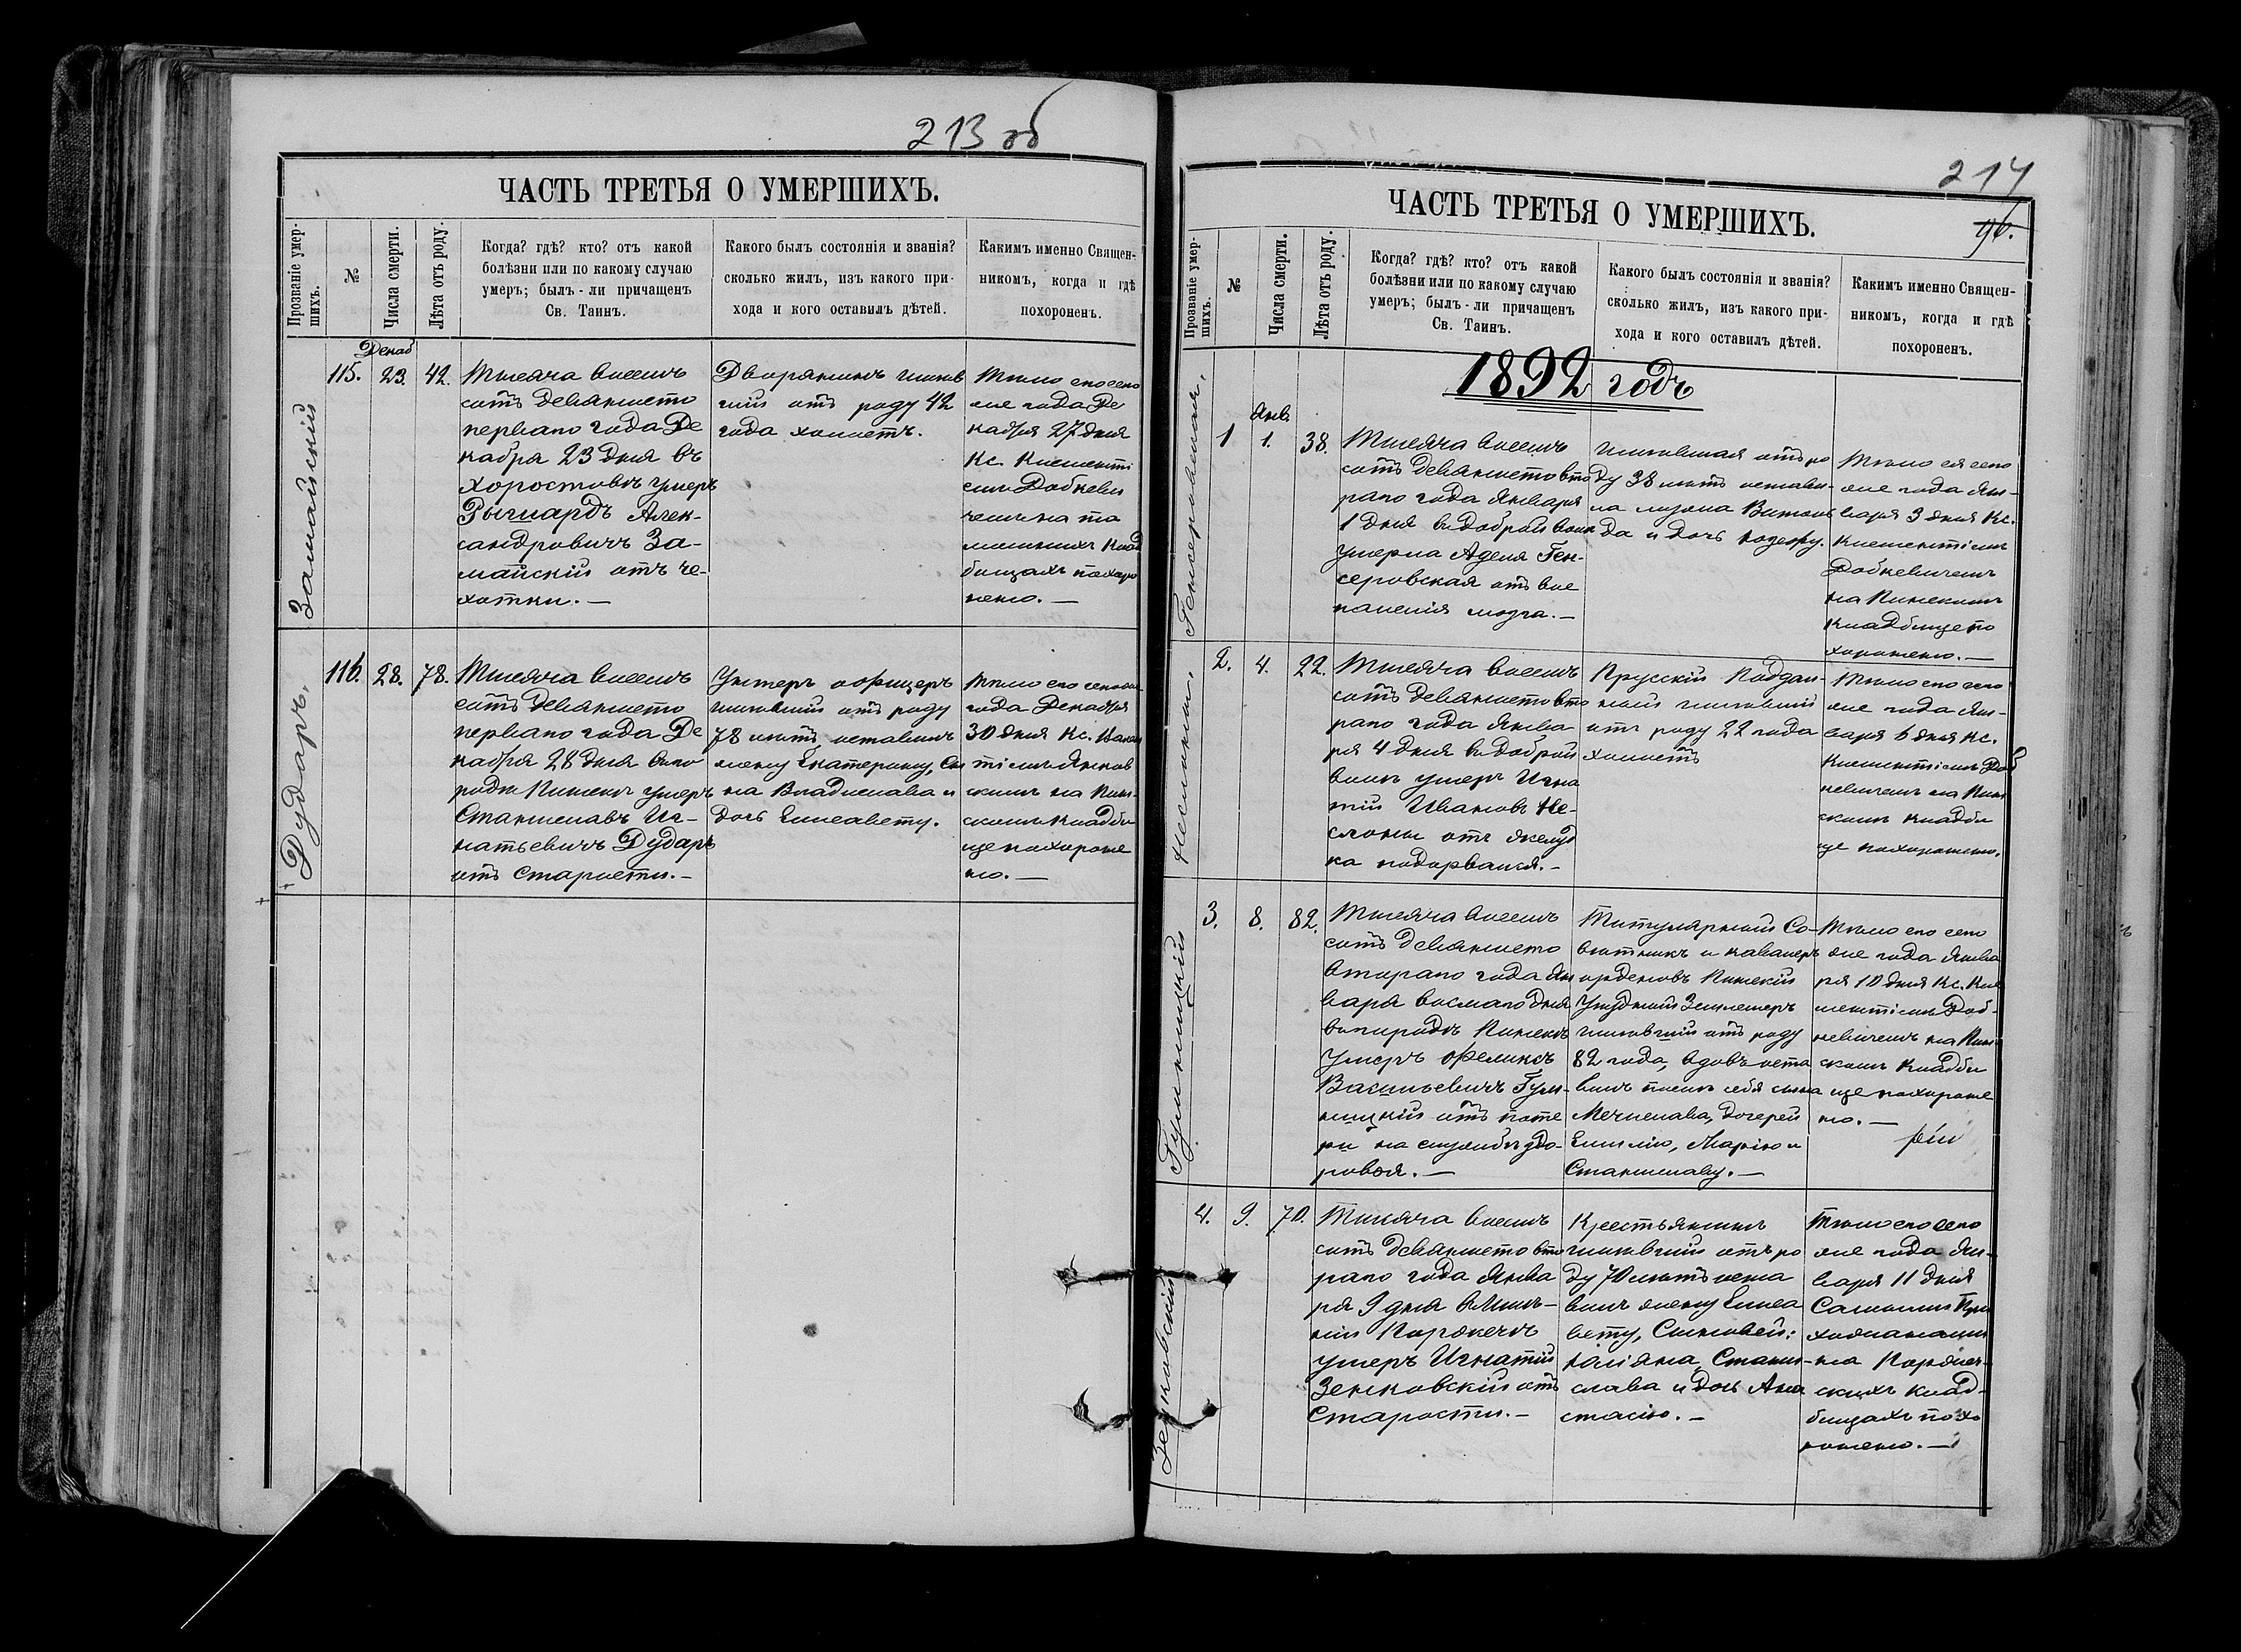 213 об
ЧАСТЬ ТРЕТЬЯ О УМЕРШИХЪ.
Прозваніе умер-
шихъ.
№
Числа смерти.
Лѣта отъ роду.
Когда? гдѣ? кто? отъ какой
болѣзни или по какому случаю
умеръ; былъ-ли причащенъ
Св. Таинъ.
Какого былъ состоянія и званія?
сколько жилъ, изъ какого при-
хода и кого оставилъ дѣтей.
Какимъ именно Священ-
никомъ, когда и гдѣ
похороненъ.
Замайскій
Декаб
115. 23. 42.
Тысяча восемь
сотъ девяносто
перваго года Де
кабря 23 дня въ
Хоростовѣ умеръ
Рычардъ Алек-
сандровичъ За-
майскій отъ че-
хотки. —
Дворянинъ жив
шій отъ роду 42
года холостъ.
Тѣло его сего
же года Де
кабря 27 дня
Кс. Клементі
емъ Добкеви
чемъ на та
мошнихъ клад
бищахъ похоро
нено. —
Дударъ.
116. 28. 78.
Тысяча восемь
сотъ девяносто
перваго года Де
кабря 28 дня въ го
родѣ Пинскѣ умеръ
Станиславъ Иг-
натьевичъ Дударъ
отъ старости. —
Унтеръ офицеръ
жившій отъ роду
78 лѣтъ оставилъ
жену Екатерину, сы
на Владислава и
дочь Елисавету.
Тѣло его сего же
года Декабря
30 дня Кс.
тіемъ Янков
скимъ на Пин-
скомъ кладби
ще похороне
но. —
214
96.
ЧАСТЬ ТРЕТЬЯ О УМЕРШИХЪ.
Прозваніе умер-
шихъ.
№
Числа смерти.
Лѣта отъ роду.
Когда? гдѣ? кто? отъ какой
болѣзни или по какому случаю
умеръ; былъ-ли причащенъ
Св. Таинъ.
Какого былъ состоянія и званія?
сколько жилъ, изъ какого при-
хода и кого оставилъ дѣтей.
Какимъ именно Священ-
никомъ, когда и гдѣ
похороненъ.
1892 годъ
Генсеровская,
Янв.
1 1. 38.
Тысяча восемь
сотъ девяносто вто
раго года Января
1 дня въ Доброй волѣ
умерла Аделя Ген-
серовская отъ вос
паленія мозга. —
жившая отъ ро
ду 38 лѣтъ остави-
ла мужа Витоль
да и дочь Юзефу.
Тѣло ея сего
же года Ян-
варя 3 дня Кс.
Клементіемъ
Добкевичемъ
на Пинскомъ
кладбище по
хоронено. —
Неслоны.
2. 4. 22.
Тысяча восемь
сотъ девяносто вто
раго года Янва
ря 4 дня въ Доброй
волѣ умеръ Игна
тій Ивановъ Не-
слоны отъ желуд
ка подорванія. —
Прусскій поддан-
ный жившій
отъ роду 22 года
холостъ
Тѣло его сего
же года Ян-
варя 6 дня Кс.
Клементіемъ Доб
кевичемъ на Пин
скомъ кладби
ще похоронено.
Гумницкій
3. 8. 82.
Тысяча восемь
сотъ девяносто
втораго года Ян
варя восмаго дня
въ городѣ Пинскѣ
умеръ Феликсъ
Васильевичъ Гум-
ницкій отъ поте
ри на службѣ здо-
ровья. —
Титулярный Со-
вѣтникъ и кавалеръ
орденовъ Пинскій
Уѣздный Землемеръ
жившій отъ роду
82 года, вдовъ оста
вилъ послѣ себя сына
Мечислава, дочерей
Емилію, Марію и
Станиславу. —
Тѣло его сего
же года Янва
ря 10 дня Кс. Кле
ментіемъ Доб-
кевичемъ на Пин-
скомъ кладби
ще похороне
но. —
Зенковскій
4. 9. 70.
Тысяча восемь
сотъ девяносто вто
раго года Янва
ря 9 дня
умеръ Игнатій
Зенковскій отъ
старости. —
Крестьянинъ
жившій отъ ро
ду 70 лѣтъ оста
вилъ жену Елиса
вету, сыновей:
Юліяна, Стани-
слава и дочь Ана
стасію. —
Тѣло его сего
же года Ян-
варя 11 дня
Самыми При
хожанами
на
скихъ клад-
бищахъ похо
ронено. —